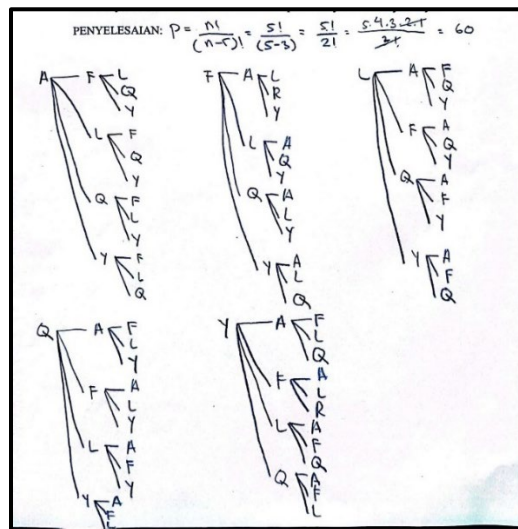 PENYELESAIAN: P = n!/(n-r)! = 5!/(5-3)! = 5!/2! = 5.4.3.2.1/2.1 = 60
A F L
Q
Y
L F
Q
Y
Q F
L
Y
Y F
L
Q
F A L
R
Y
L A
Q
Y
Q A
L
Y
Y A
L
Q
L A F
Q
Y
F A
Q
Y
Q A
F
Y
Y A
F
Q
Q A F
L
Y
F A
L
Y
L A
F
Y
Y A
F
L
Y A F
L
Q
F A
L
R
L A
F
Q
Q A
F
L